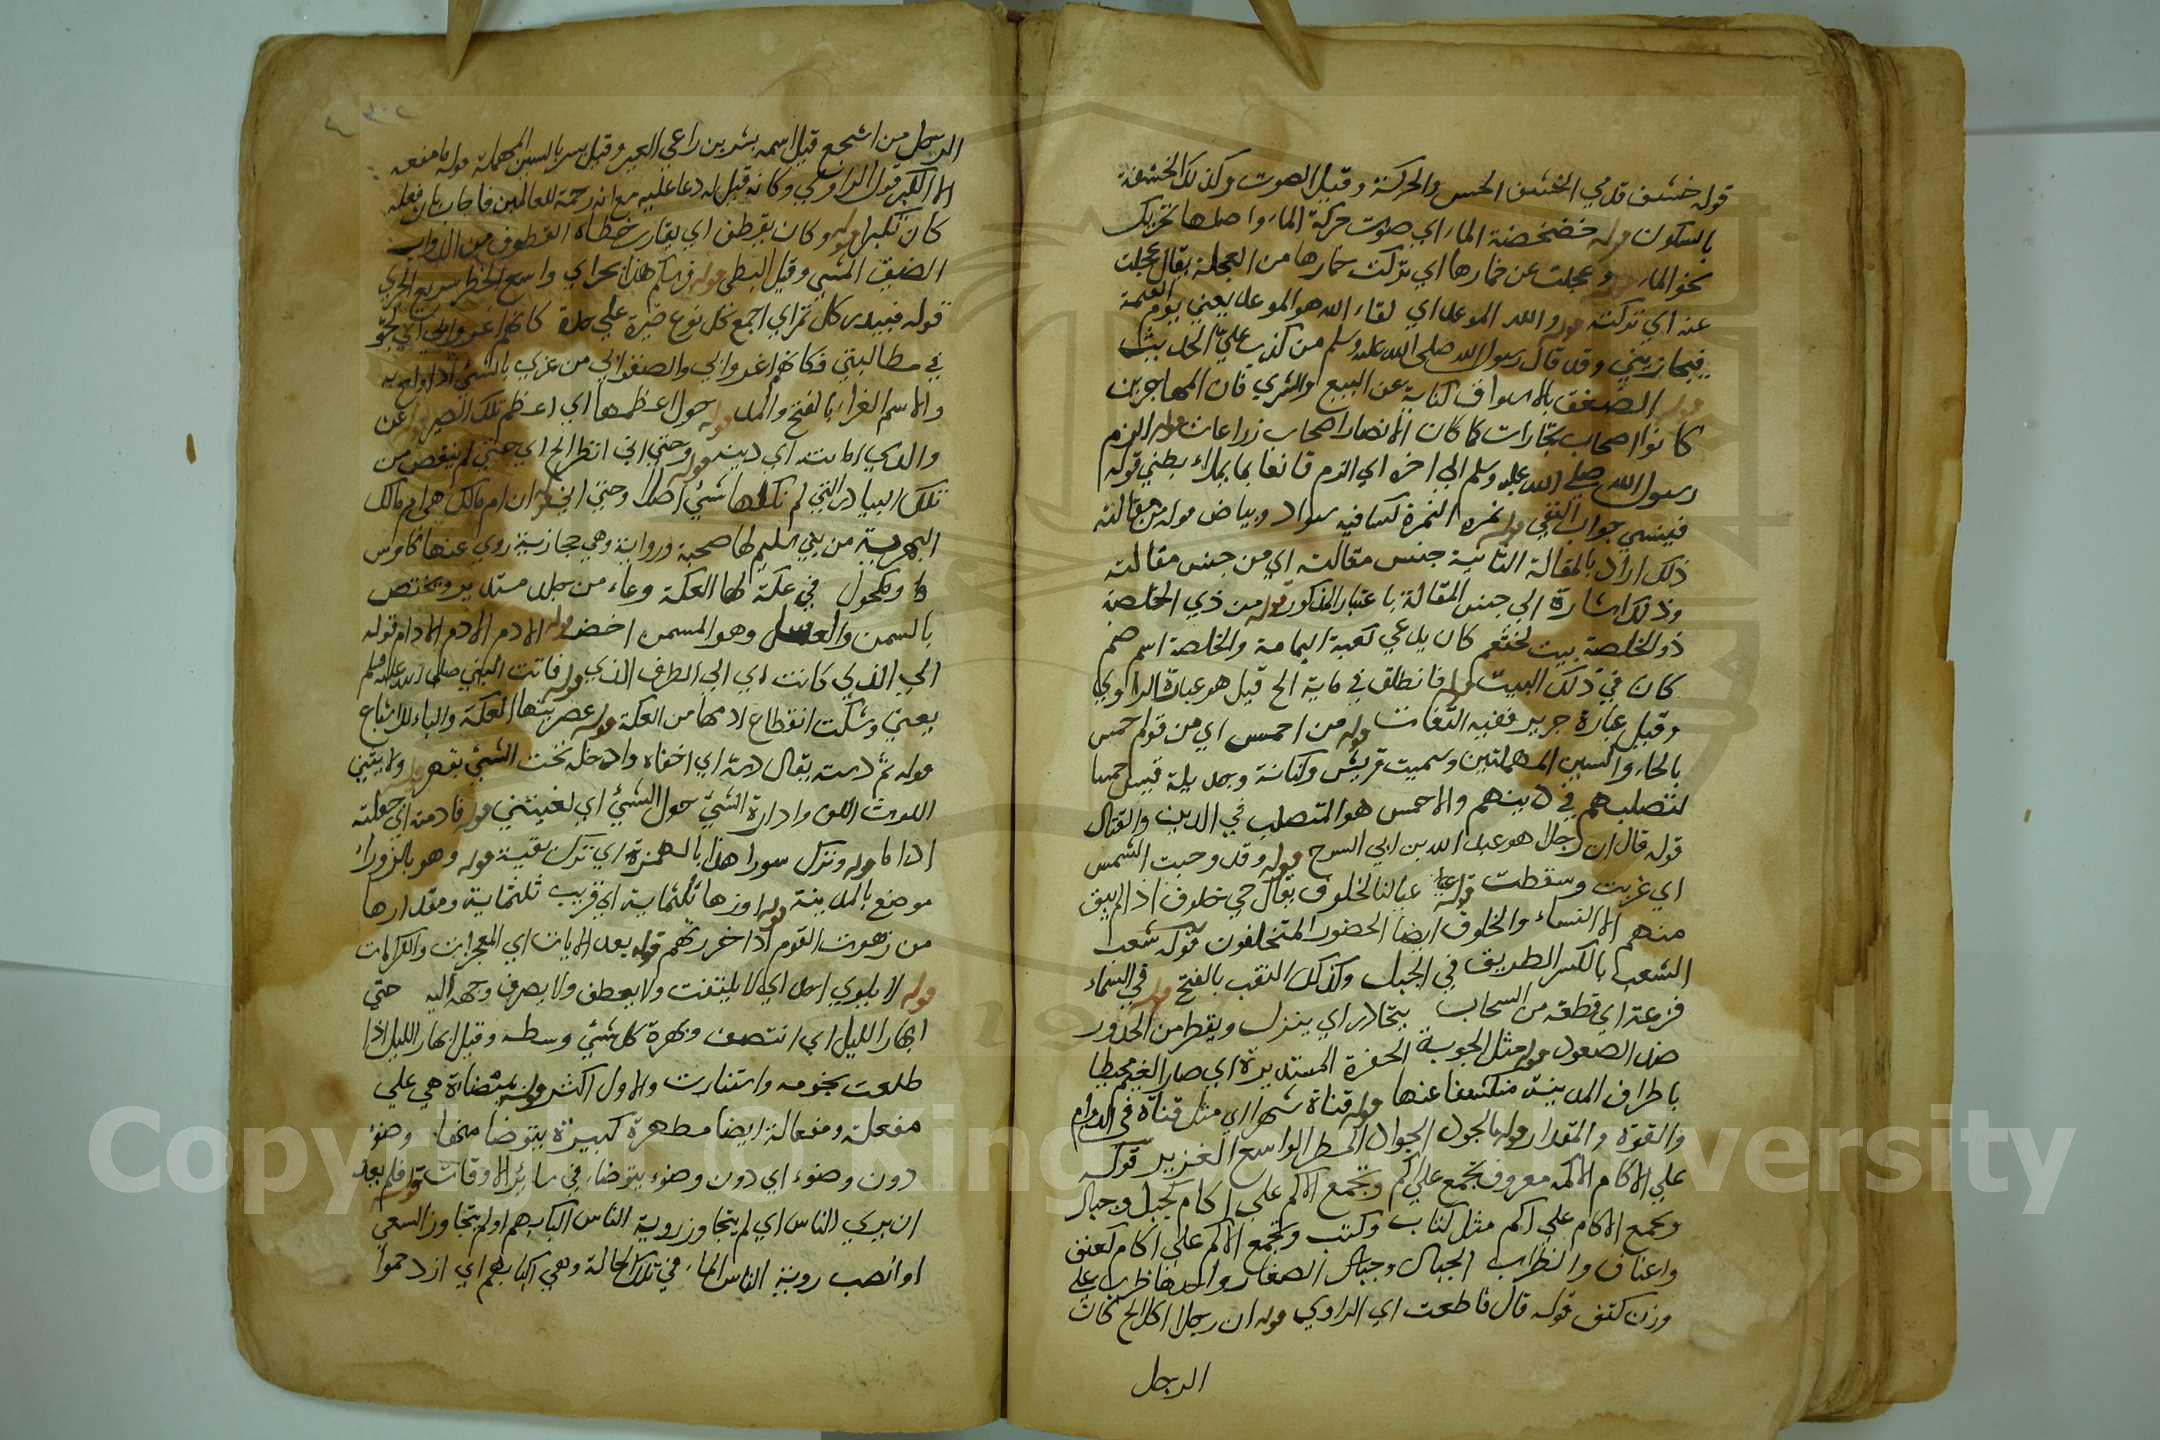 قوله خشف قدمي الخشف الحس والحركة وقيل الصوت وكذلك الخشفة
بالسكون قوله خضخضة الماء اي صوت حركة الماء واصلها تحريك
نحو الماء وعجلت عن خمارها اي تركت خمارها من العجلة يقال عجلت
عنه اي تركته قوله والله الموعد اي لقاء الله هو الموعد يعني يوم القيمة
فيجازيني وقد قال رسول الله صلى الله عليه وسلم من كذب علي الحديث
قوله الصفق بالاسواق كناية عن البيع والشري فان المهاجرين
كانوا اصحاب تجارات كما كان الانصار اصحاب زراعات قوله الزم
رسول الله صلى الله عليه وسلم الي اخره اي الزم قانعا بما يملاء بطني قوله
فينسي جواب النفي قوله نمرة النمرة كساء فيه سواد وبياض قوله من مقالته
ذلك اراد بالمقالة الثانية جنس مقالته اي من جنس مقالته
وذلك اشارة الي جنس المقالة باعتبار المذكور قوله من ذي الخلصة
ذو الخلصة بيت لخثعم كان يدعي كعبة اليمامة والخلصة اسم صنم
كان في ذلك البيت قوله فانطلق في ماية الخ قيل هو عبارة الراوي
وقيل عبارة جرير ففيه التفات قوله من احمس اي من قوم حمس
بالحاء والسين المهملتين وسميت قريش وكنانة وجديلة قيس حمسا
لتصلبهم في دينهم والاحمس هو المتصلب في الدين والقتال
قوله قال ان رجلا هو عبد الله بن ابي السرح قوله وقد وجبت الشمس
اي غربت وسقطت قوله عيالنا لخلوف يقال حي خلوف اذا لم يبق
منهم الا النساء والخلوف ايضا الحضور المتخلفون قوله شعب
الشعب بالكسر الطريق في الجبل وكذلك النقب بالفتح قوله في السماء
قزعة اي قطعة من السحاب يتحادر اي ينزل ويقطر من الحدور
ضد الصعود قوله مثل الجوبة الحفرة المستديرة اي صار الغيم محيطا
باطراف المدينة منكشفا عنها قوله قناة شهرا اي مثل قناة في الدوام
والقوة والمقدار قوله بالجود الجود المطر الواسع الغزير قوله
علي الاكام الاكمة معروف تجمع علي اكم وتجمع الاكم علي اكام كجبل وجبال
وتجمع الاكام علي اكم مثل كتاب وكتب وتجمع الاكم علي اكام كعنق
واعناق والظراب الجبال وجبال الصغار واحدها ظرب علي
وزن كتف قوله قال فاطعت اي الراوي قوله ان رجلا اكل الخ كان
الرجل
الرجل من اشجع قيل اسمه بشر بن راعي العير وقيل بسر بالسين المهملة قوله ما منعه
الا الكبر قول الراوي وكانه قيل له دعا عليه مع انه رحمة للعالمين فاجاب بان فعله
كان تكبرا قوله وكان يقطف اي يقارب خطاه القطوف من الدواب
الضيق المشي وقيل البطي قوله فرسكم هذا بحرا اي واسع الخطر سريع الجري
قوله فبيدر كل تمر اي اجمع كل نوع صبرة علي حدة كانهم اغروا بي اي لجوا
في مطالبتي فكانهم اغروا بي والصقوا بي من غري بالشئ اذا اولع به
والاسم الغراء بالفتح والمد قوله حول اعظمها اي اعظم تلك الصبر عن
والدي امانته اي دينه قوله وحتي اني انظر الخ اي حتي لم ينقص من
تلك البيادر التي لم نكلها شئ اصلا وحتي اني قوله ان ام مالك هي ام مالك
البهزية من بني السليم لها صحبة ورواية وهي حجازية روي عنها طاوس
ومكحول في عكة لها العكة وعاء من جلد مستدير ويختص
بالسمن والعسل وهو المسمن اخص قوله الادم الادم الادام قوله
الي الذي كانت اي الي الطرف الذي قوله فاتت النبي صلى الله عليه وسلم
يعني وشكت انقطاع ادمها من العكة قوله عصرتيها العكة والياء للاشباع
قوله ثم دسته يقال دسه اي اخفاه وادخله تحت الشئ بقهر ولاثتني
اللوث اللف وادارة الشئ حول الشئ اي لفيتني قوله فادمته اي جعلته
اداما قوله وترك سورا هذا بالهمزة اي ترك بقية قوله وهو بالزوراء
موضع بالمدينة قوله اوزها ثلثماية اي قريب ثلثماية ومقدارها
من زهوت القوم اذا حزرتهم قوله يعد الايات اي المعجزات والكرامات
قوله لا يلوي احد اي لا يلتفت ولا يعطف ولا يصرف وجهه اليه حتي
ابهار الليل اي انتصف وبهرة كل شئ وسطه وقيل ابهار الليل اذا
طلعت نجومه واستنارت والاول اكثر قوله بميضاءة هي علي
مفعلة ومفعالة ايضا مطهرة كبيرة يتوضا منها وضوء
دون وضوء اي دون وضوء يتوضا في سائر الاوقات قوله فلم يعد
ان يري الناس اي لم يتجاوز روية الناس اكبابهم اولم يتجاوز السعي
او انصب روية الناس الماء في تلك الحالة وهي اكبابهم اي ازدحموا
Copyright © King Saud University